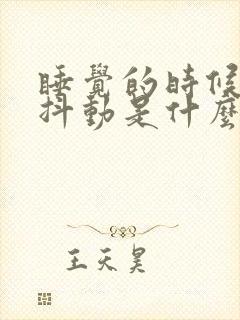 睡覺的時候
抖動是什麼
王天昊